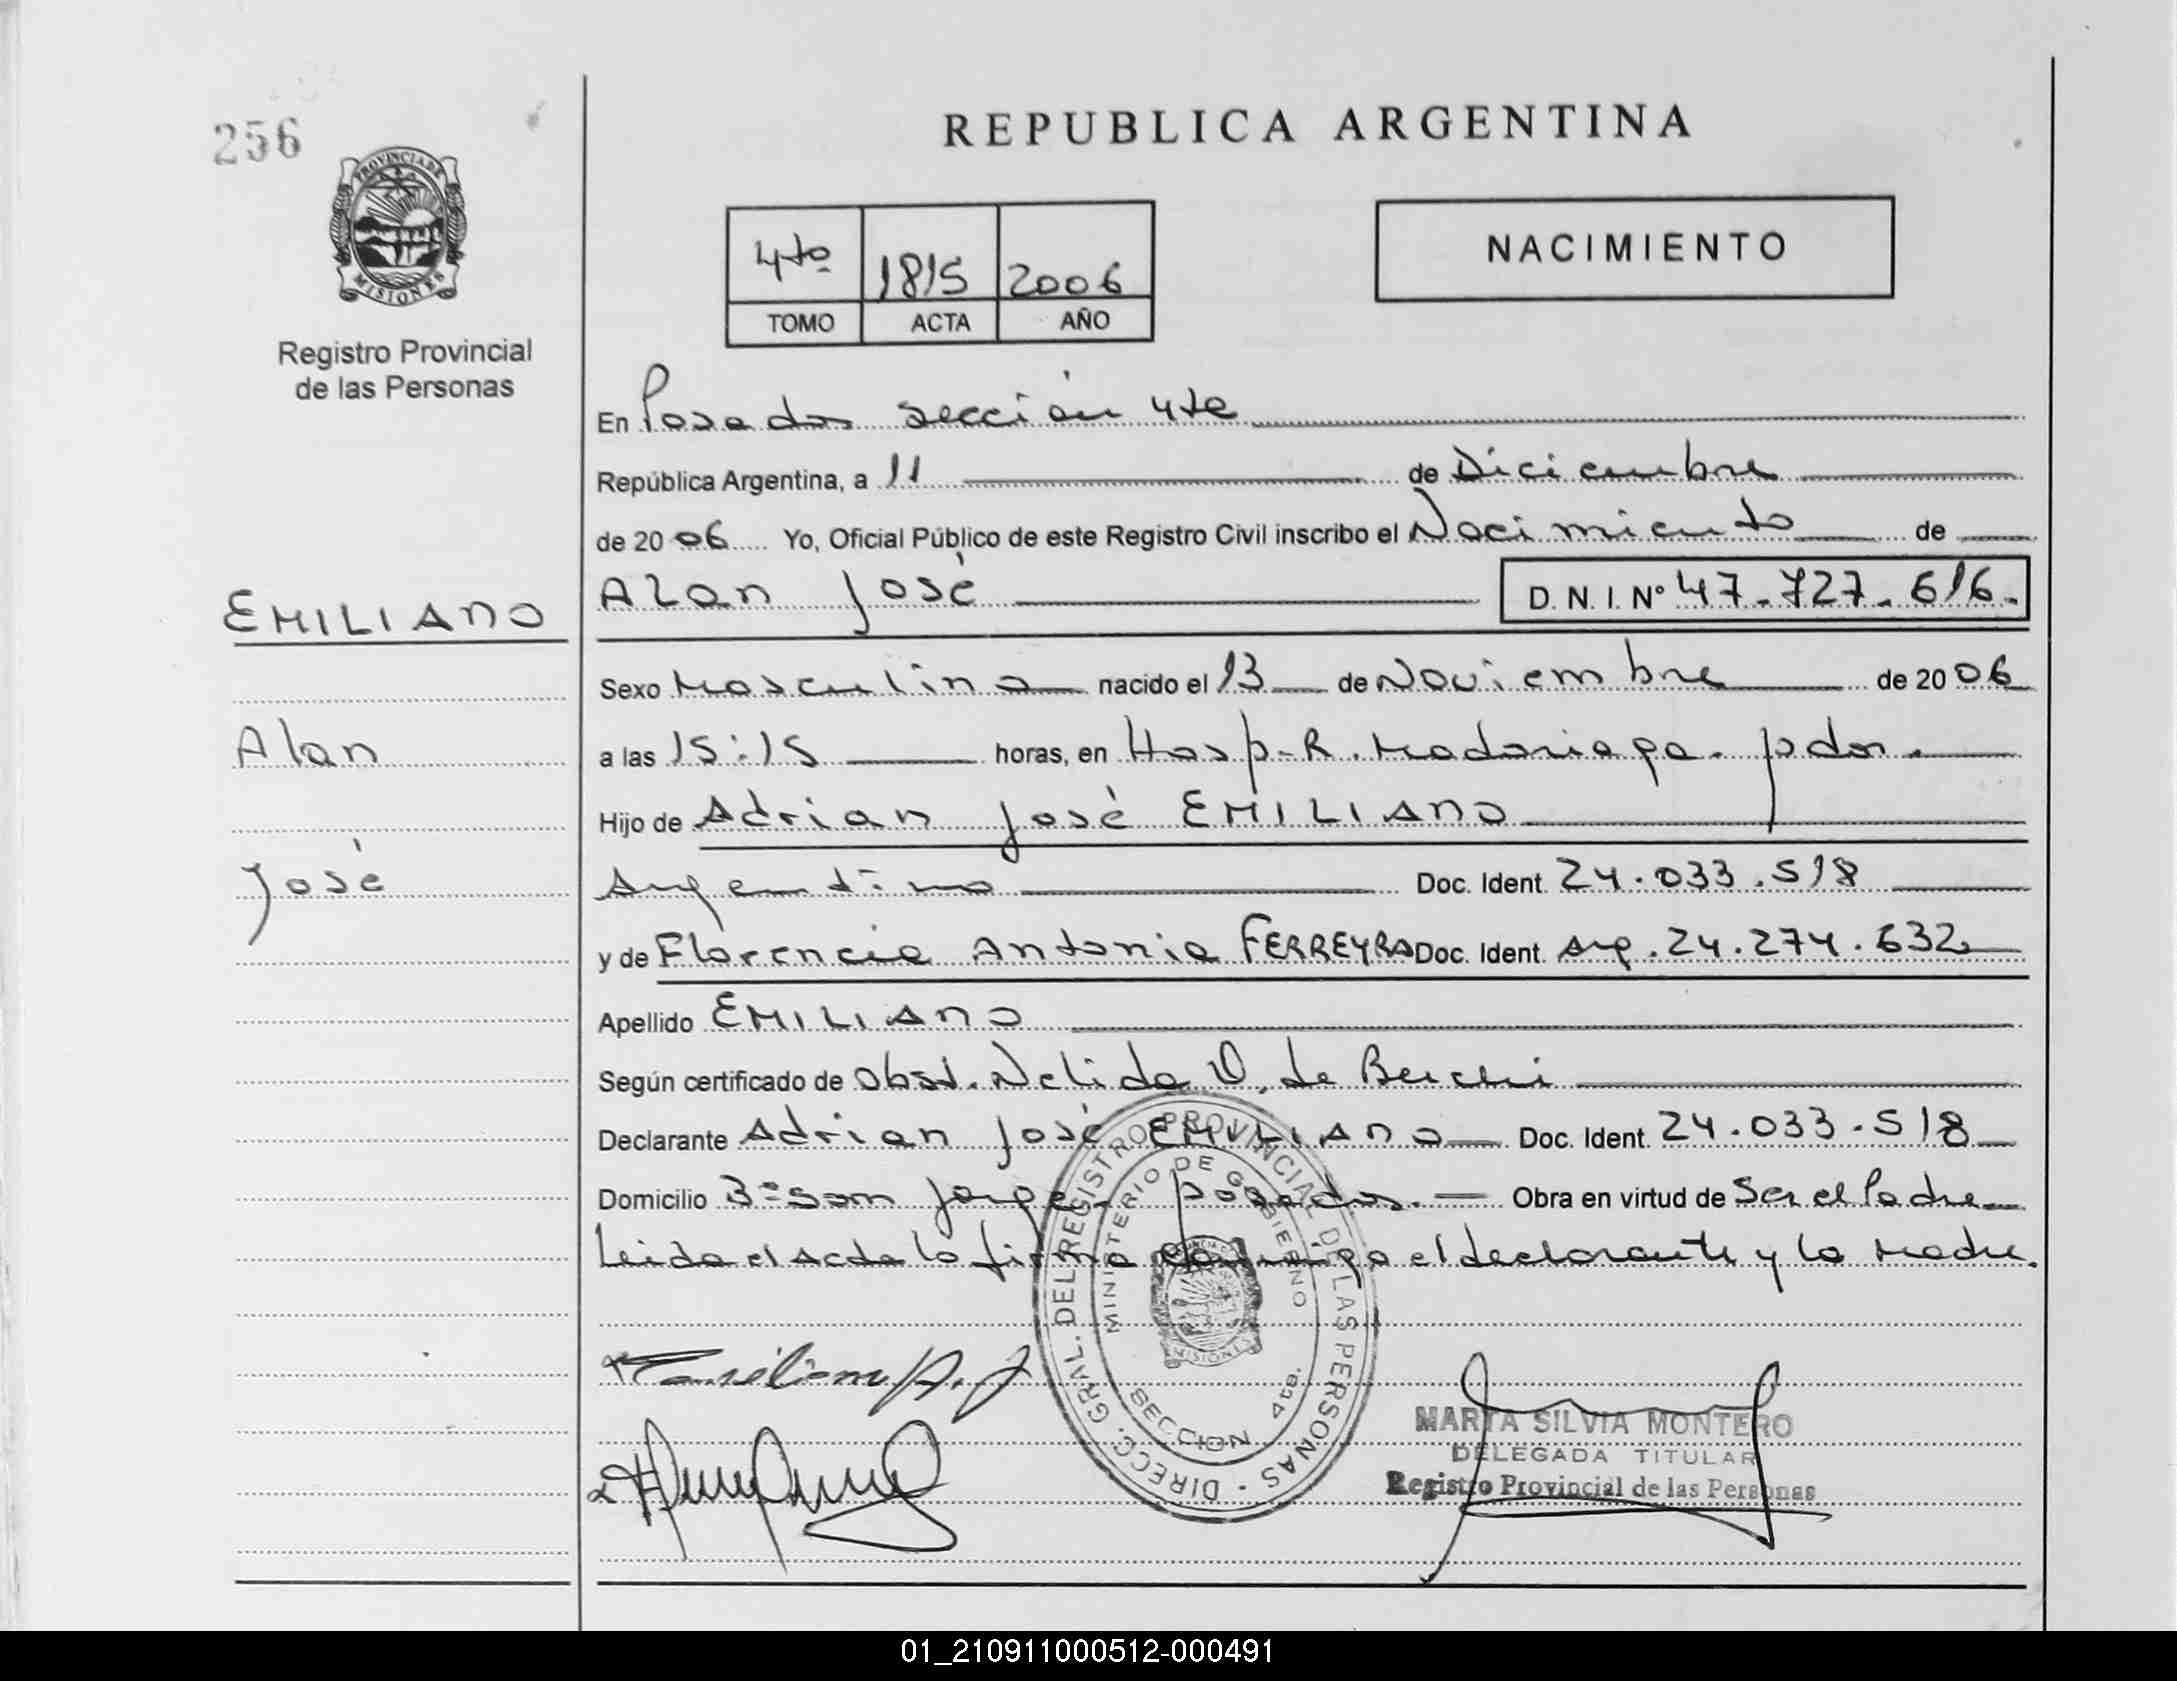 256
PROVINCIA DE
MISIONES
Registro Provincial
de las Personas
REPUBLICA ARGENTINA
4to 1815 2006
TOMO ACTA AÑO
NACIMIENTO
En Posadas sección 4ta
República Argentina, a 11 de Diciembre
de 2006 Yo, Oficial Público de este Registro Civil inscribo el Nacimiento de
EMILIANO
Alan José D.N.I. Nº 47.727.616.
Sexo Masculino nacido el 13 de Noviembre de 2006
Alan
a las 15:15 horas, en Hosp. R. Madariaga. pdas.
Hijo de Adrian José EMILIANO
José
Argentino Doc. Ident. 24.033.518
y de Florencia Antonia FERREYRA Doc. Ident. Arg. 24.274.632
Apellido EMILIANO
Según certificado de Obst. Nelida O. de
Declarante Adrian José EMILIANO Doc. Ident. 24.033.518
Domicilio Bº San Jorge. posadas. Obra en virtud de Ser el Padre
Leida el Acta la firma conmigo el declarante y la Madre.
DIRECC. GRAL. DEL REGISTRO PROVINCIAL DE LAS PERSONAS
MINISTERIO DE GOBIERNO
MISIONES
SECCION 4ta.
Emiliano A. J
MARTA SILVIA MONTERO
DELEGADA TITULAR
Registro Provincial de las Personas
01_210911000512-000491